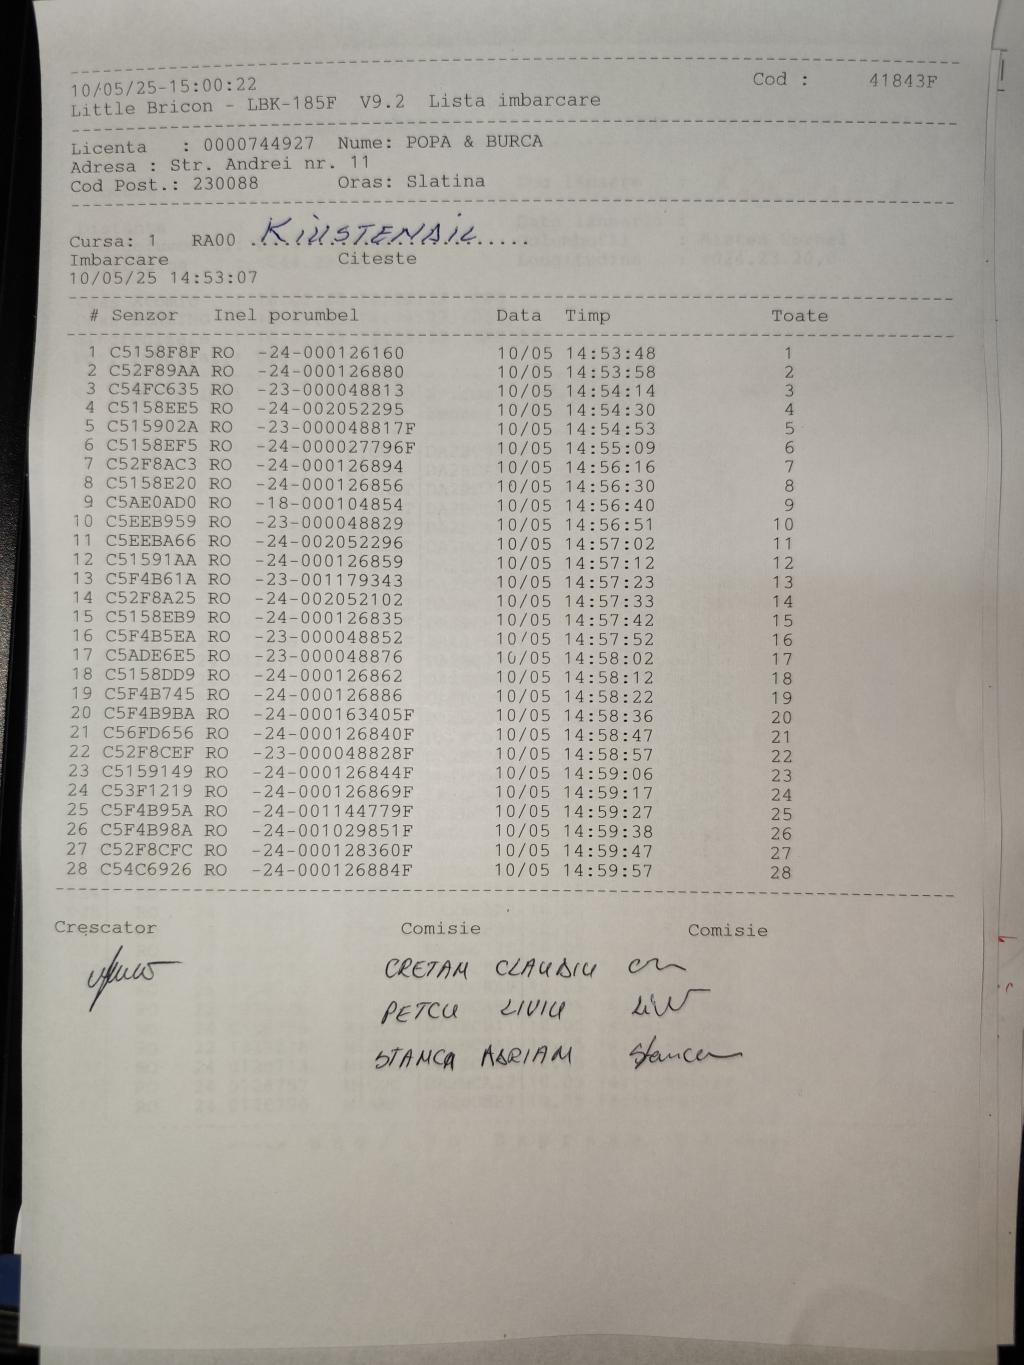 10/05/25-15:00:22 Cod : 41843F
Little Bricon - LBK-185F V9.2 Lista imbarcare
Licenta : 0000744927 Nume: POPA & BURCA
Adresa : Str. Andrei nr. 11
Cod Post.: 230088 Oras: Slatina
Cursa: 1 RA00 .KIUSTENDIL.....
Imbarcare Citeste
10/05/25 14:53:07
# Senzor Inel porumbel Data Timp Toate
1 C5158F8F RO -24-000126160 10/05 14:53:48 1
2 C52F89AA RO -24-000126880 10/05 14:53:58 2
3 C54FC635 RO -23-000048813 10/05 14:54:14 3
4 C5158EE5 RO -24-002052295 10/05 14:54:30 4
5 C515902A RO -23-000048817F 10/05 14:54:53 5
6 C5158EF5 RO -24-000027796F 10/05 14:55:09 6
7 C52F8AC3 RO -24-000126894 10/05 14:56:16 7
8 C5158E20 RO -24-000126856 10/05 14:56:30 8
9 C5AE0AD0 RO -18-000104854 10/05 14:56:40 9
10 C5EEB959 RO -23-000048829 10/05 14:56:51 10
11 C5EEBA66 RO -24-002052296 10/05 14:57:02 11
12 C51591AA RO -24-000126859 10/05 14:57:12 12
13 C5F4B61A RO -23-001179343 10/05 14:57:23 13
14 C52F8A25 RO -24-002052102 10/05 14:57:33 14
15 C5158EB9 RO -24-000126835 10/05 14:57:42 15
16 C5F4B5EA RO -23-000048852 10/05 14:57:52 16
17 C5ADE6E5 RO -23-000048876 10/05 14:58:02 17
18 C5158DD9 RO -24-000126862 10/05 14:58:12 18
19 C5F4B745 RO -24-000126886 10/05 14:58:22 19
20 C5F4B9BA RO -24-000163405F 10/05 14:58:36 20
21 C56FD656 RO -24-000126840F 10/05 14:58:47 21
22 C52F8CEF RO -23-000048828F 10/05 14:58:57 22
23 C5159149 RO -24-000126844F 10/05 14:59:06 23
24 C53F1219 RO -24-000126869F 10/05 14:59:17 24
25 C5F4B95A RO -24-001144779F 10/05 14:59:27 25
26 C5F4B98A RO -24-001029851F 10/05 14:59:38 26
27 C52F8CFC RO -24-000128360F 10/05 14:59:47 27
28 C54C6926 RO -24-000126884F 10/05 14:59:57 28
Crescator Comisie Comisie
CRETAN CLAUDIU
PETCU LIVIU
STANCA ADRIAN Stanca